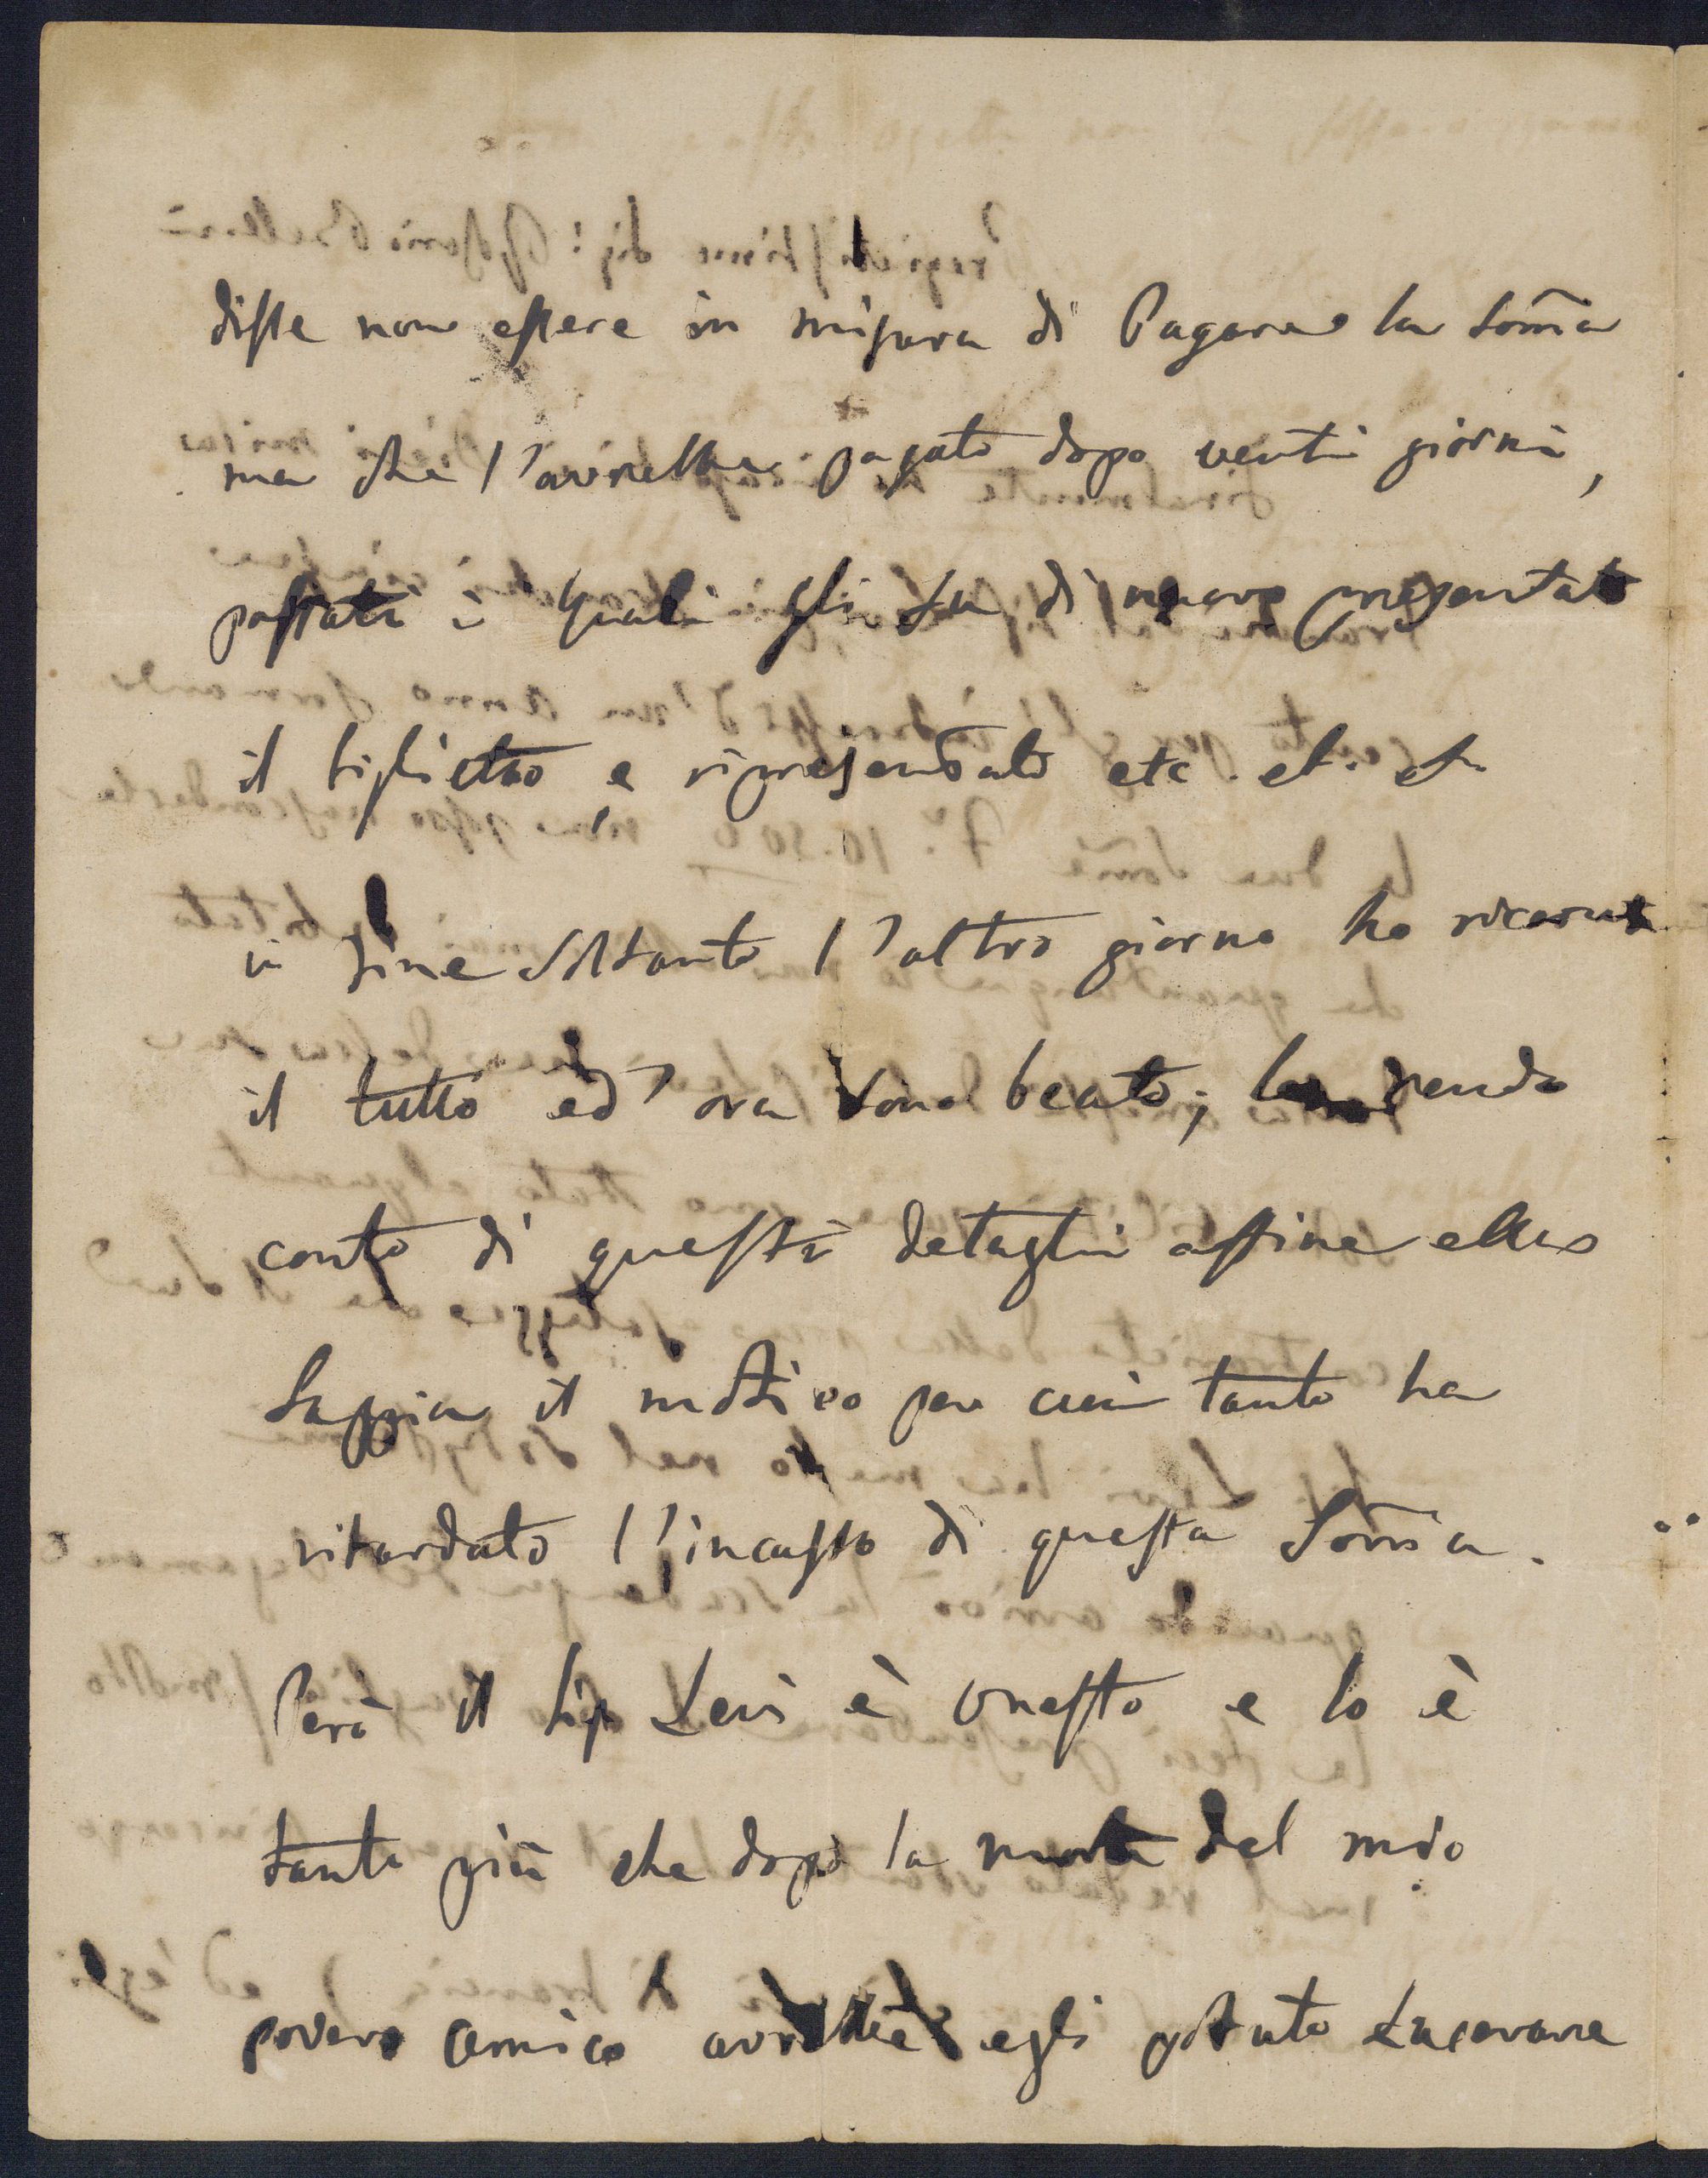 disse non essere in misura di Pagare la som̄a
ma che l'avrebbe pagato dopo venti giorni,
passati i quali gli fu di nuovo presentato
il biglietto e ripresentato etc. et. et.
in fine soltanto l'altro giorno ho ricevuto
il tutto ed' ora sono beato; le rendo
conto di questi detagli affine ella
sappia il motivo per cui tanto ha
ritardato l'incasso di questa Som̄a.
Però il Sig Levi è onesto e lo è
tanto più che dopo la morte del mio
povero amico avrebbe egli potuto lacerare